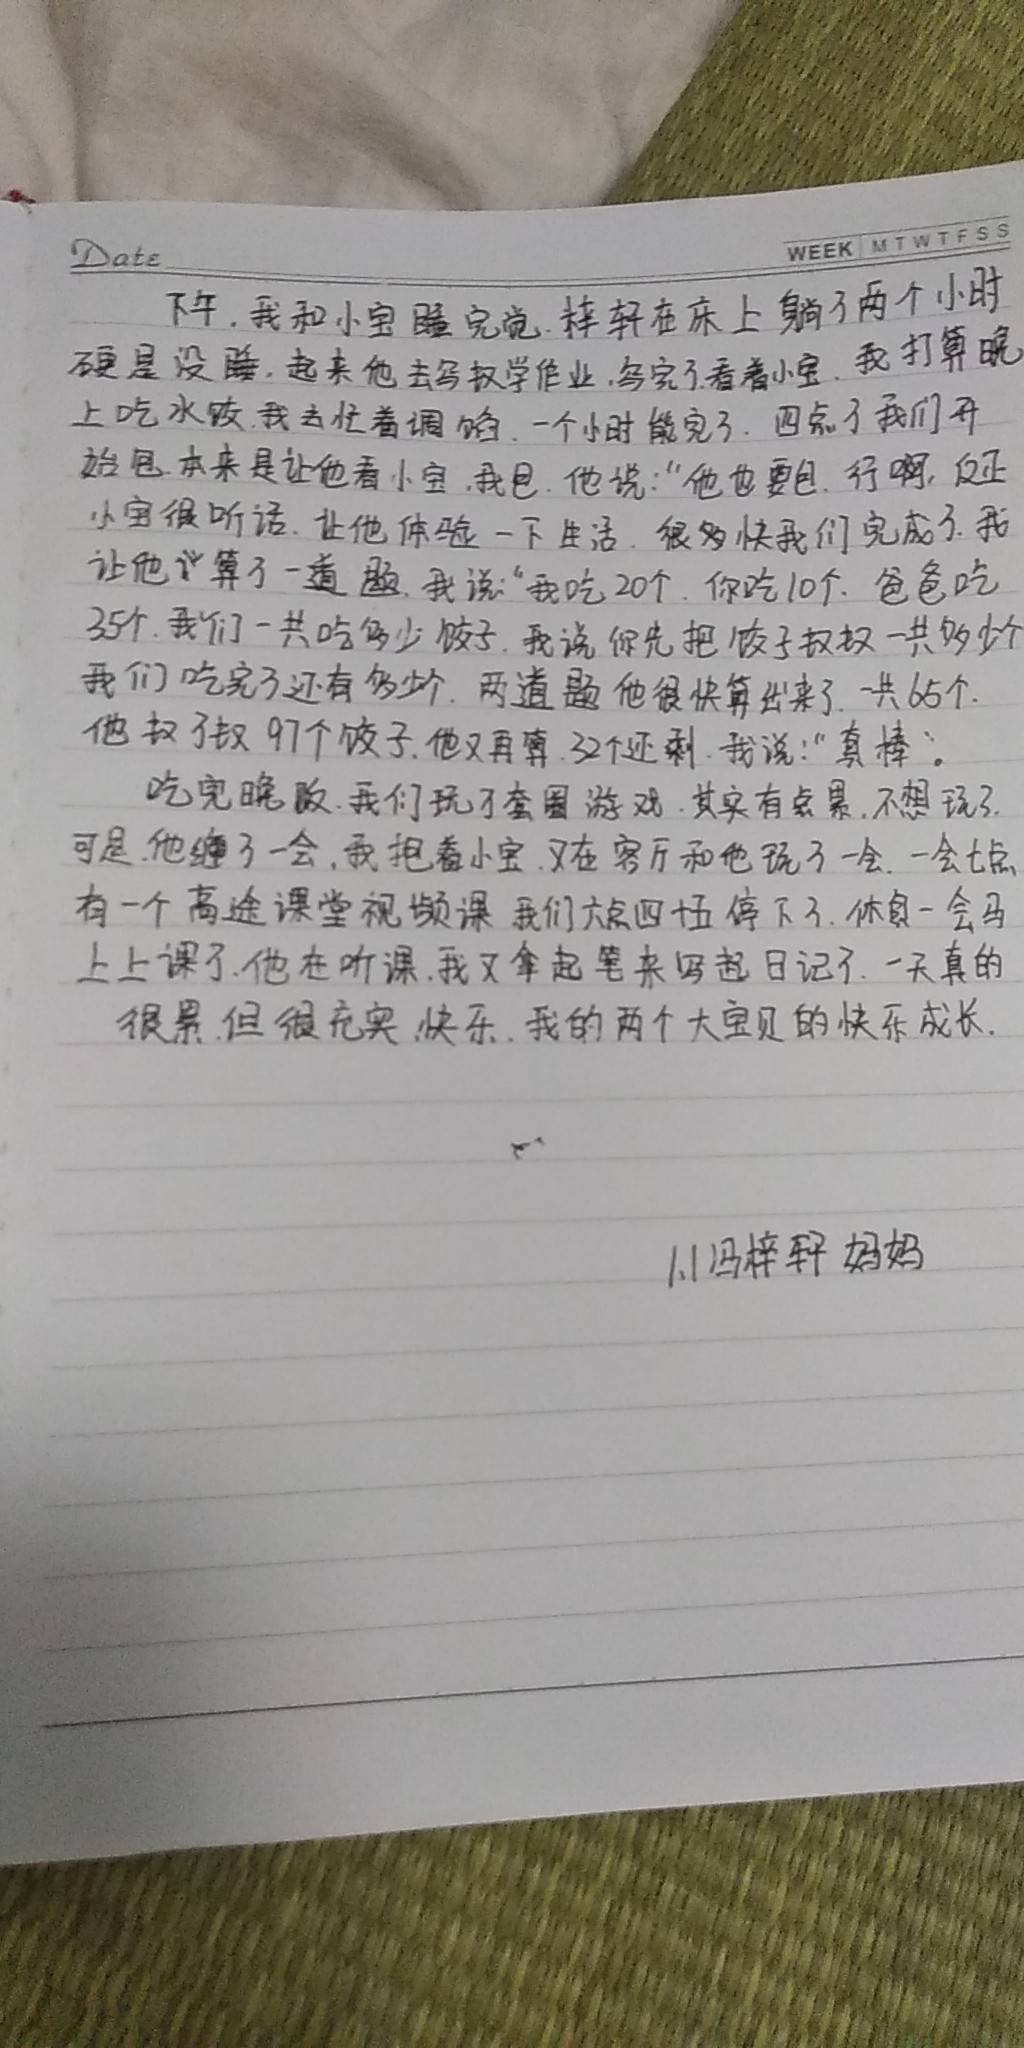 Date
WEEK M T W T F S S
下午,我和小宝睡完觉.梓轩在床上躺了两个小时
硬是没睡,起来他去写数学作业,写完了看着小宝.我打算晚
上吃水饺,我去忙着调馅.一个小时能完了.四点了我们开
始包.本来是让他看小宝,我包.他说:“他也要包.行啊,反正
小宝很听话.让他体验一下生活.很多快我们完成了.我
让他计算了一道题.我说:“我吃20个.你吃10个.爸爸吃
35个.我们一共吃多少饺子.我说你先把饺子数数一共多少个
我们吃完了还有多少个.两道题他很快算出来了.一共65个.
他数了数97个饺子,他又再算.32个还剩.我说:“真棒”。
吃完晚饭.我们玩了套圈游戏.其实有点累,不想玩了.
可是.他缠了一会,我抱着小宝.又在客厅和他玩了一会.一会七点
有一个高途课堂视频课 我们六点四十五停下了.休息一会马
上上课了.他在听课.我又拿起笔来写起日记了.一天真的
很累.但很充实,快乐.我的两个大宝贝的快乐成长.
1.1冯梓轩妈妈